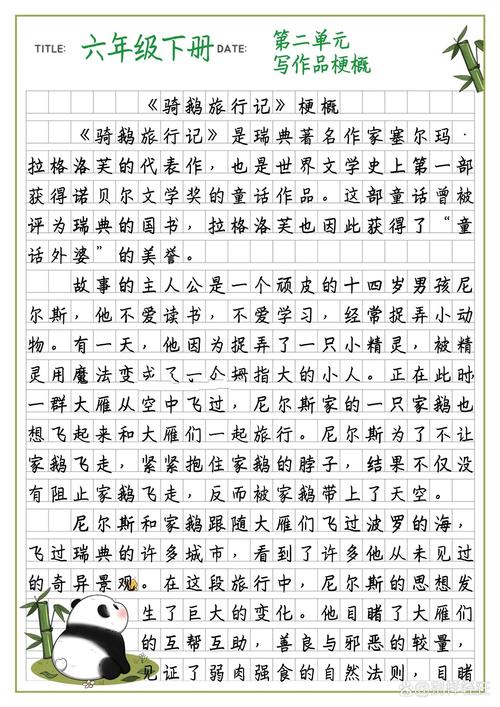 TITLE: 六年级下册 DATE: 第二单元
写作品梗概
《骑鹅旅行记》梗概
《骑鹅旅行记》是瑞典著名作家塞尔玛·
拉格洛芙的代表作，也是世界文学史上第一部
获得诺贝尔文学奖的童话作品。这部童话曾被
评为瑞典的国书，拉格洛芙也因此获得了“童
话外婆”的美誉。
故事的主人公是一个顽皮的十四岁男孩尼
尔斯，他不爱读书，不爱学习，经常捉弄小动
物。有一天，他因为捉弄了一只小精灵，被精
灵用魔法变成了一个拇指大的小人。正在此时
一群大雁从空中飞过，尼尔斯家的一只家鹅也
想飞起来和大雁们一起旅行。尼尔斯为了不让
家鹅飞走，紧紧抱住家鹅的脖子，结果不仅没
有阻止家鹅飞走，反而被家鹅带上了天空。
尼尔斯和家鹅跟随大雁们飞过波罗的海，
飞过瑞典的许多城市，看到了许多他从未见过
的奇异景观。在这段旅行中，尼尔斯的思想发
生了巨大的变化。他目睹了大雁们
的互帮互助，善良与邪恶的较量，
见证了弱肉强食的自然法则，目睹